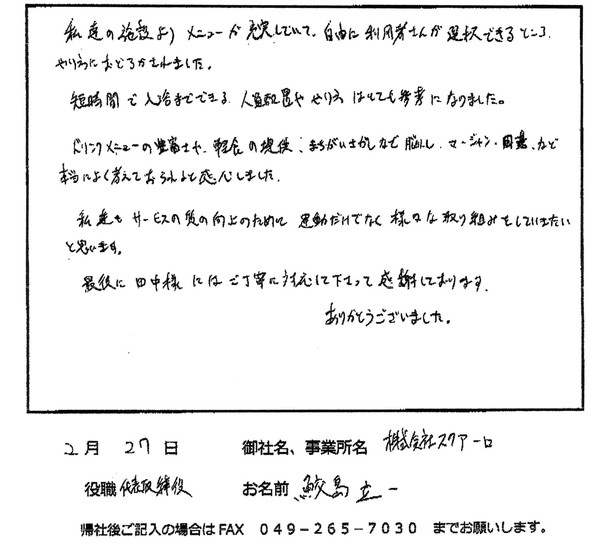 私達の施設よりメニューが充実していて、自由に利用者さんが選択できるところ、
やり方におどろかされました。
短時間で入浴までできる、人員配置ややり方はとても参考になりました。
ドリンクメニューの豊富さや、軽食の提供、まちがいさがしなど脳トレ、マージャン・囲碁、など
本当によく考えておられると感心しました。
私達もサービスの質の向上のために運動だけでなく様々な取り組みをしていきたい
と思います。
最後に田中様にはご丁寧に対応して下さって感謝しております。
ありがとうございました。
2月 27日 御社名、事業所名 株式会社スクアーロ
役職 代表取締役 お名前 鮫島 立一
帰社後ご記入の場合はFAX 049-265-7030 までお願いします。